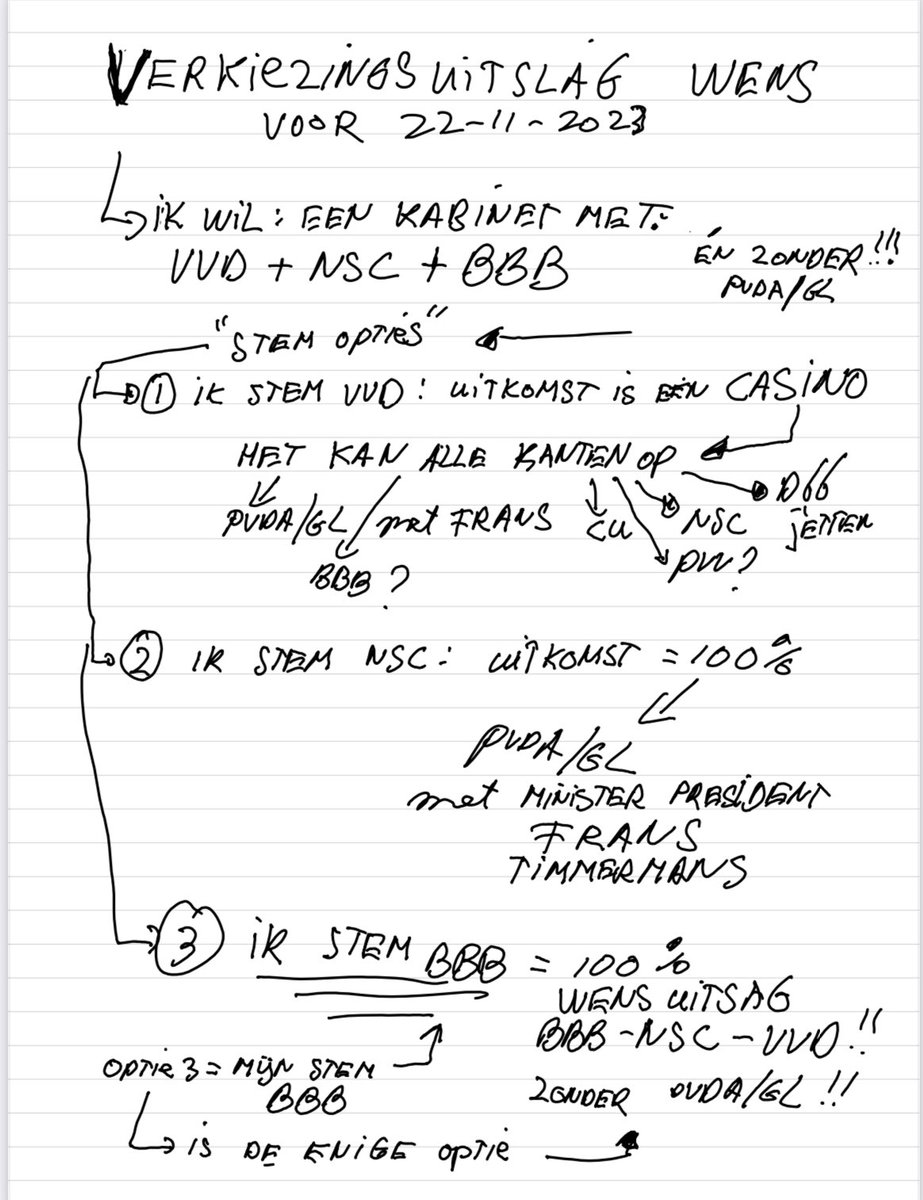 VERKIEZINGSUITSLAG WENS
VOOR 22-11-2023
IK WIL: EEN KABINET MET:
VVD + NSC + BBB
ÉN ZONDER!!!
PVDA/GL
"STEM OPTIES"
① IK STEM VVD: UITKOMST IS EEN CASINO
HET KAN ALLE KANTEN OP
PVDA/GL met FRANS CU NSC D66
JETTEN
BBB? PVV?
② IK STEM NSC: UITKOMST = 100%
PVDA/GL
met MINISTER PRESIDENT
FRANS
TIMMERMANS
③ IK STEM BBB = 100%
WENS UITSAG
BBB-NSC-VVD!!
OPTIE 3 = MIJN STEM
BBB
ZONDER PVDA/GL!!
IS DE ENIGE OPTIE